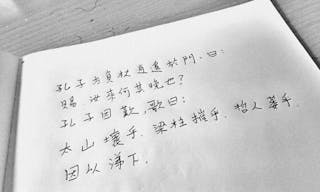 孔子方負杖逍遙於門，曰：
賜，汝來何其晚也？
孔子因歎，歌曰：
太山壞乎、梁柱摧乎、哲人萎乎、
因以涕下。